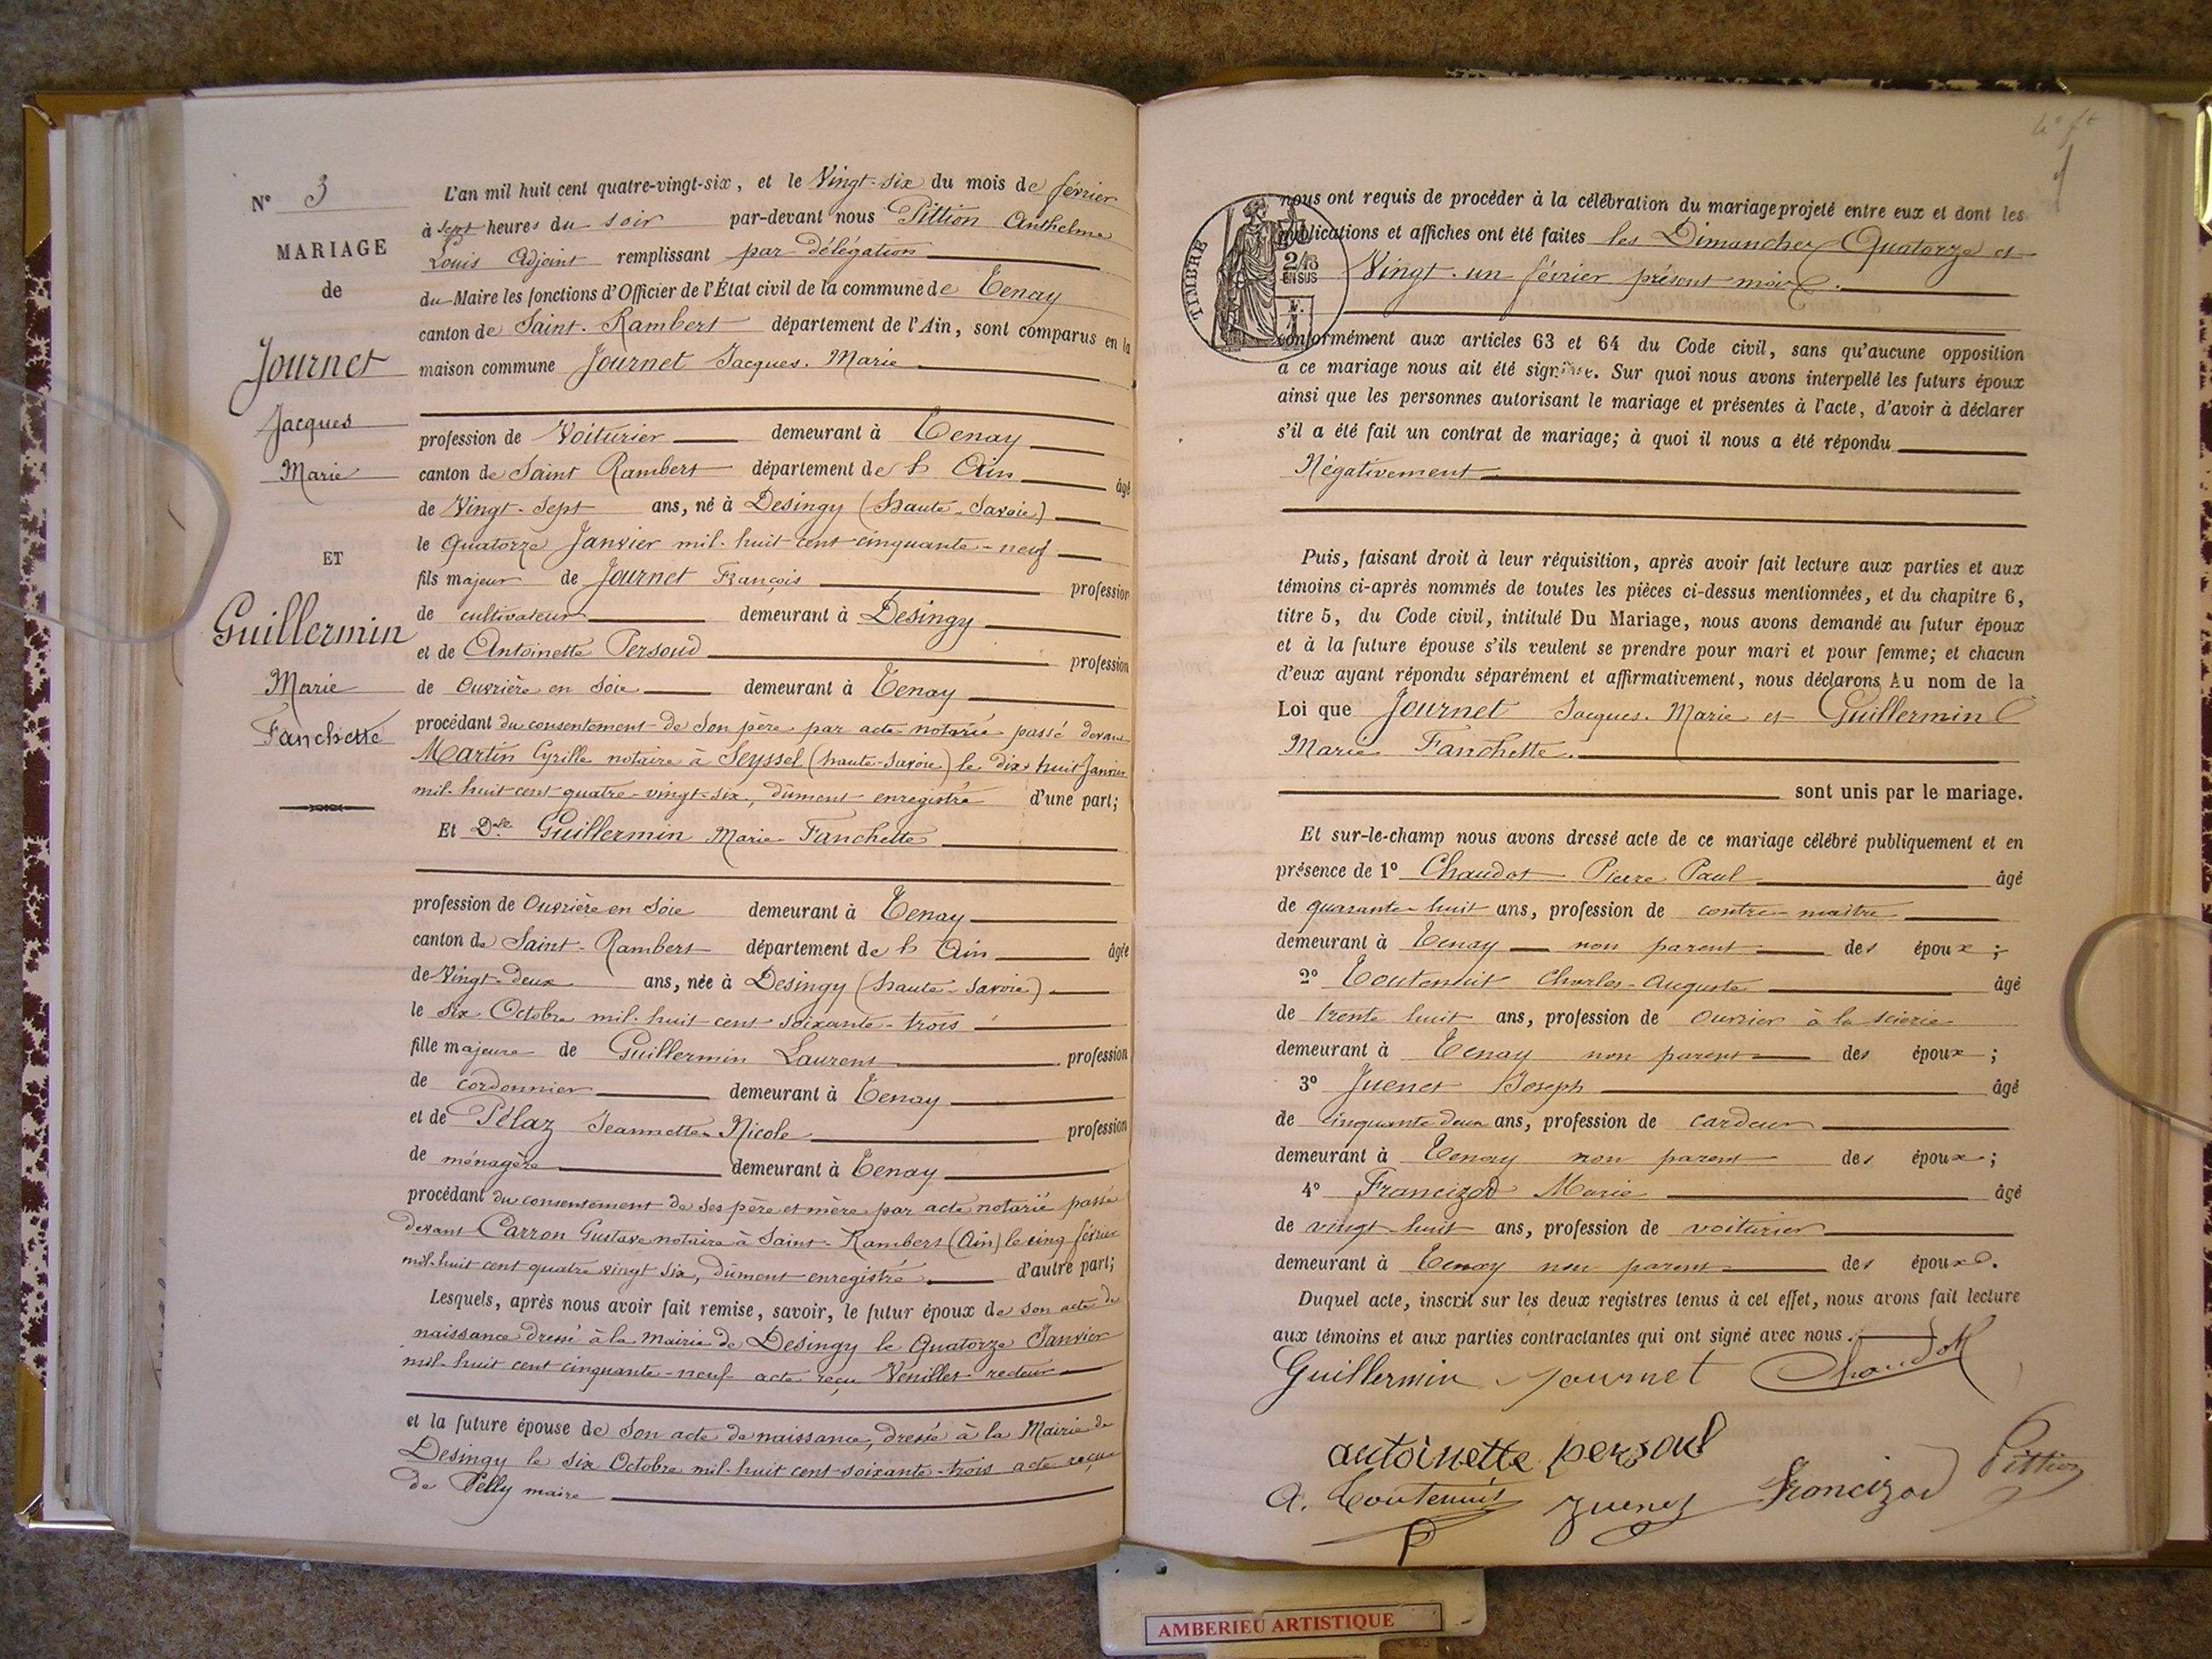 N° 3
MARIAGE
de
Journet
Jacques
Marie
ET
Guillermin
Marie
Fanchette
L'an mil huit cent quatre-vingt-six, et le Vingt-six du mois de février
à sept heures du soir par-devant nous Pittion Anthelme
Louis Adjoint remplissant par délégation
du Maire les fonctions d'Officier de l'État civil de la commune de Tenay
canton de Saint-Rambert département de l'Ain, sont comparus en la
maison commune Journet Jacques-Marie
profession de Voiturier demeurant à Tenay
canton de Saint Rambert département de l'Ain âgé
de Vingt-sept ans, né à Desingy (haute-Savoie)
le Quatorze Janvier mil-huit cent cinquante-neuf
fils majeur de Journet François profession
de cultivateur demeurant à Desingy
et de Antoinette Persoud profession
de ouvrière en soie demeurant à Tenay
procédant du consentement de son père par acte notarié passé devant
Martin Cyrille notaire à Seyssel (haute-Savoie) le dix huit Janvier
mil-huit cent quatre-vingt-six, dûment enregistré d'une part;
Et Dlle Guillermin Marie-Fanchette
profession de Ouvrière en soie demeurant à Tenay
canton de Saint-Rambert département de l'Ain âgée
de Vingt-deux ans, née à Desingy (haute-Savoie)
le six Octobre mil-huit cent soixante-trois
fille majeure de Guillermin Laurent profession
de cordonnier demeurant à Tenay
et de Pélaz Jeannette-Nicole profession
de ménagère demeurant à Tenay
procédant du consentement de ses père et mère par acte notarié passé
devant Carron Gustave notaire à Saint-Rambert (Ain) le cinq février
mil-huit cent quatre vingt six, dûment enregistré d'autre part;
Lesquels, après nous avoir fait remise, savoir, le futur époux de son acte de
naissance dressé à la Mairie de Desingy le Quatorze Janvier
mil-huit cent cinquante-neuf acte reçu recteur
et la future épouse de son acte de naissance, dressé à la Mairie de
Desingy le six Octobre mil-huit cent soixante-trois acte reçu
de Pelly maire
TIMBRE
2/10
EN SUS
nous ont requis de procéder à la célébration du mariage projeté entre eux et dont les
publications et affiches ont été faites les Dimanches Quatorze et
Vingt-un février présent mois
conformément aux articles 63 et 64 du Code civil, sans qu'aucune opposition
à ce mariage nous ait été signifiée. Sur quoi nous avons interpellé les futurs époux
ainsi que les personnes autorisant le mariage et présentes à l'acte, d'avoir à déclarer
s'il a été fait un contrat de mariage; à quoi il nous a été répondu
Négativement
Puis, faisant droit à leur réquisition, après avoir fait lecture aux parties et aux
témoins ci-après nommés de toutes les pièces ci-dessus mentionnées, et du chapitre 6,
titre 5, du Code civil, intitulé Du Mariage, nous avons demandé au futur époux
et à la future épouse s'ils veulent se prendre pour mari et pour femme; et chacun
d'eux ayant répondu séparément et affirmativement, nous déclarons Au nom de la
Loi que Journet Jacques-Marie et Guillermin
Marie Fanchette.
sont unis par le mariage.
Et sur-le-champ nous avons dressé acte de ce mariage célébré publiquement et en
présence de 1° Chaudot Pierre Paul âgé
de quarante-huit ans, profession de contre-maître
demeurant à Tenay non parent des époux;
2° Toutenuit Charles-Auguste âgé
de trente huit ans, profession de ouvrier à la scierie
demeurant à Tenay non parent des époux;
3° Juenet Joseph âgé
de cinquante deux ans, profession de cardeur
demeurant à Tenay non parent des époux;
4° Francizod Marie âgé
de vingt-huit ans, profession de voiturier
demeurant à Tenay non parent des époux.
Duquel acte, inscrit sur les deux registres tenus à cet effet, nous avons fait lecture
aux témoins et aux parties contractantes qui ont signé avec nous.
Guillermin Journet Chaudot
antoinette persoud
A. Toutenuit Juenet Francizod Pittion
AMBERIEU ARTISTIQUE